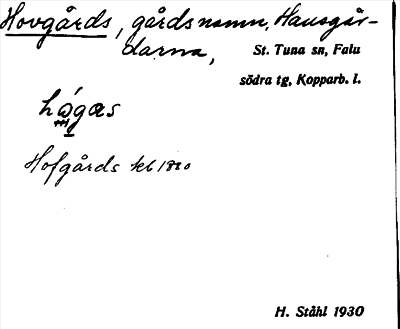 Hovgårds, gårdsnamn, Hansgår-
darna, St. Tuna sn, Falu
södra tg, Kopparb. l.
hǫ́gas
Hofgårds kb 1820
H. Ståhl 1930